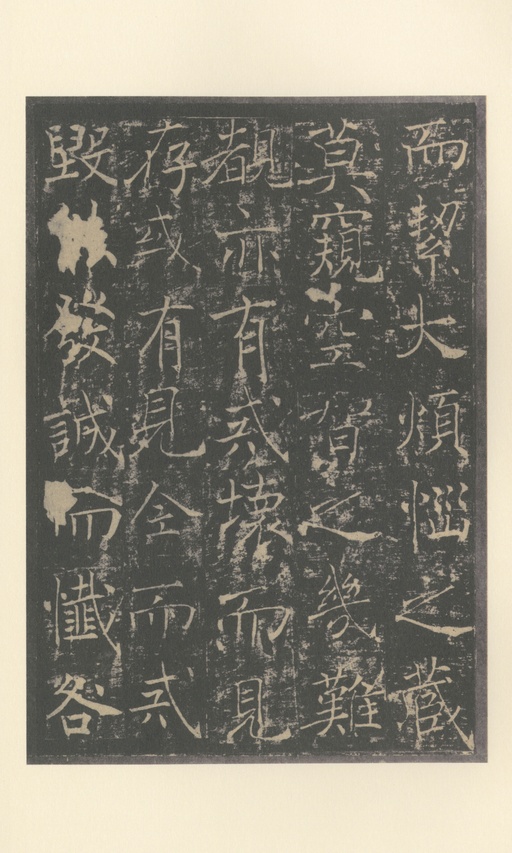 而絜大煩惱之藏
莫窺空之幾難
覩亦有弍壞而見
存或有見全而弍
毀發誠而懺咎